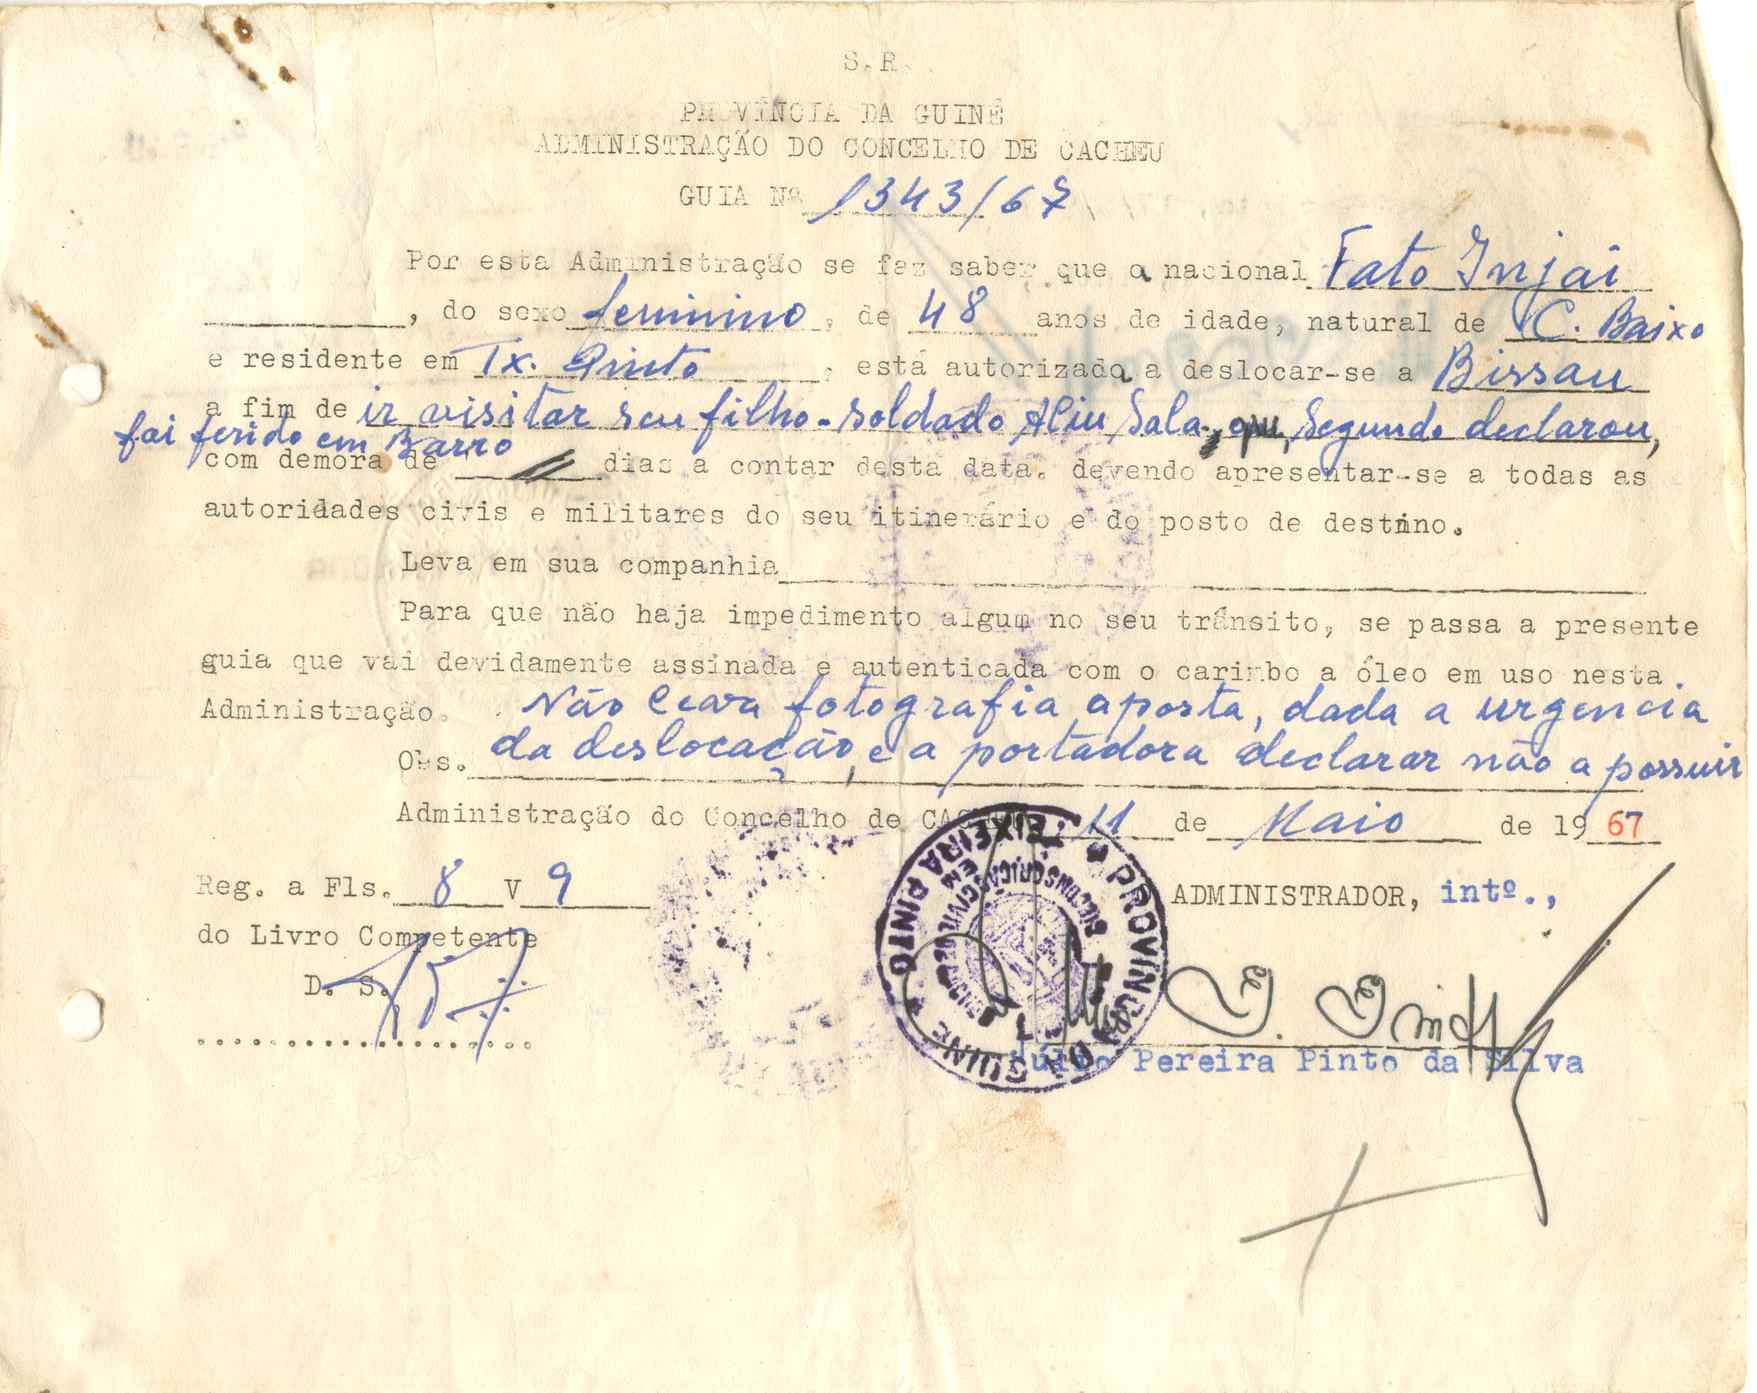 S. R.
PROVÍNCIA DA GUINÉ
ADMINISTRAÇÃO DO CONCELHO DE CACHEU
GUIA Nº 1343/67
Por esta Administração se faz saber que a nacional Fato Injai
, do sexo feminino, de 48 anos de idade, natural de C. Baixo
e residente em Tx. Pinto, está autorizada a deslocar-se a Bissau
a fim de ir visitar seu filho-soldado Aliu Sala, que, Segundo declarou,
foi ferido em Barro
com demora de dias a contar desta data. devendo apresentar-se a todas as
autoridades civis e militares do seu itinerário e do posto de destino.
Leva em sua companhia
Para que não haja impedimento algum no seu trânsito, se passa a presente
guia que vai devidamente assinada e autenticada com o carimbo a óleo em uso nesta
Administração. Não leva fotografia aposta, dada a urgencia
Obs. da deslocação, e a portadora declarar não a possuir
Administração do Concelho de CACHEU 11 de Maio de 1967
Reg. a Fls. 8 V 9
ADMINISTRADOR, intº.,
do Livro Competente
D. S.
PROVÍNCIA DA GUINÉ
TEIXEIRA PINTO
Júlio Pereira Pinto da Silva